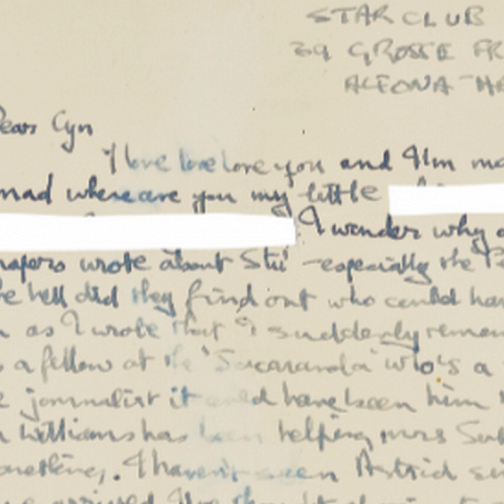 STAR CLUB
39 GROSSE FR
ALTONA HA
Dear Cyn
I love love love you and I'm m
mad where are you my little
I wonder why
papers wrote about Stu - especially the P
e hell did they find out who could ha
as I wrote that I suddenly remem
a fellow at the 'Jacaranda' who's a
journalist it could have been him
Williams has been helping Mrs Sut
omething. I haven't seen Astrid si
arrived